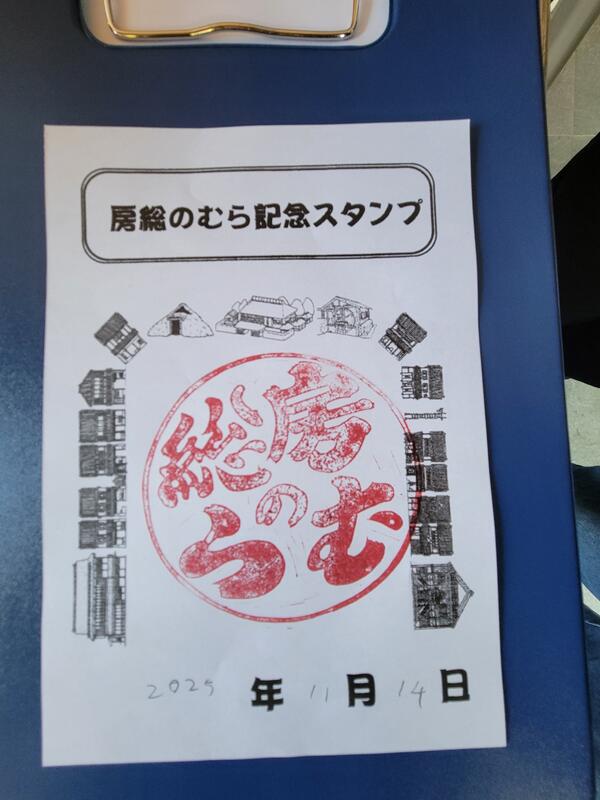 房総のむら記念スタンプ
房総
の
むら
2025年11月14日